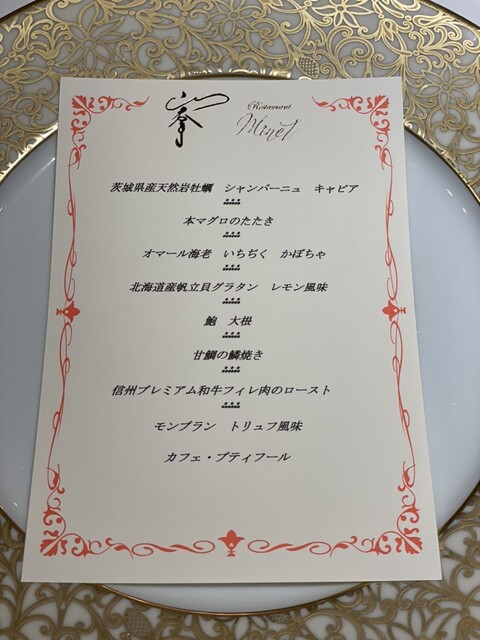 峯
Restaurant
Minet
茨城県産天然岩牡蠣　シャンパーニュ　キャビア
本マグロのたたき
オマール海老　いちぢく　かぼちゃ
北海道産帆立貝グラタン　レモン風味
鮑　大根
甘鯛の鱗焼き
信州プレミアム和牛フィレ肉のロースト
モンブラン　トリュフ風味
カフェ・プティフール